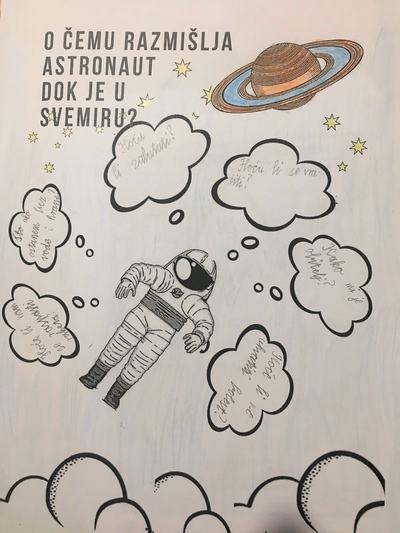 O ČEMU RAZMIŠLJA
ASTRONAUT
DOK JE U
SVEMIRU?
Hoću
li zakasniti?
Hoću li se vra-
titi?
Što ako
ostanem bez
vode i hrane?
Kako mi je
obitelj?
Hoće li
se
raketa
Hoće li me
uhvatiti